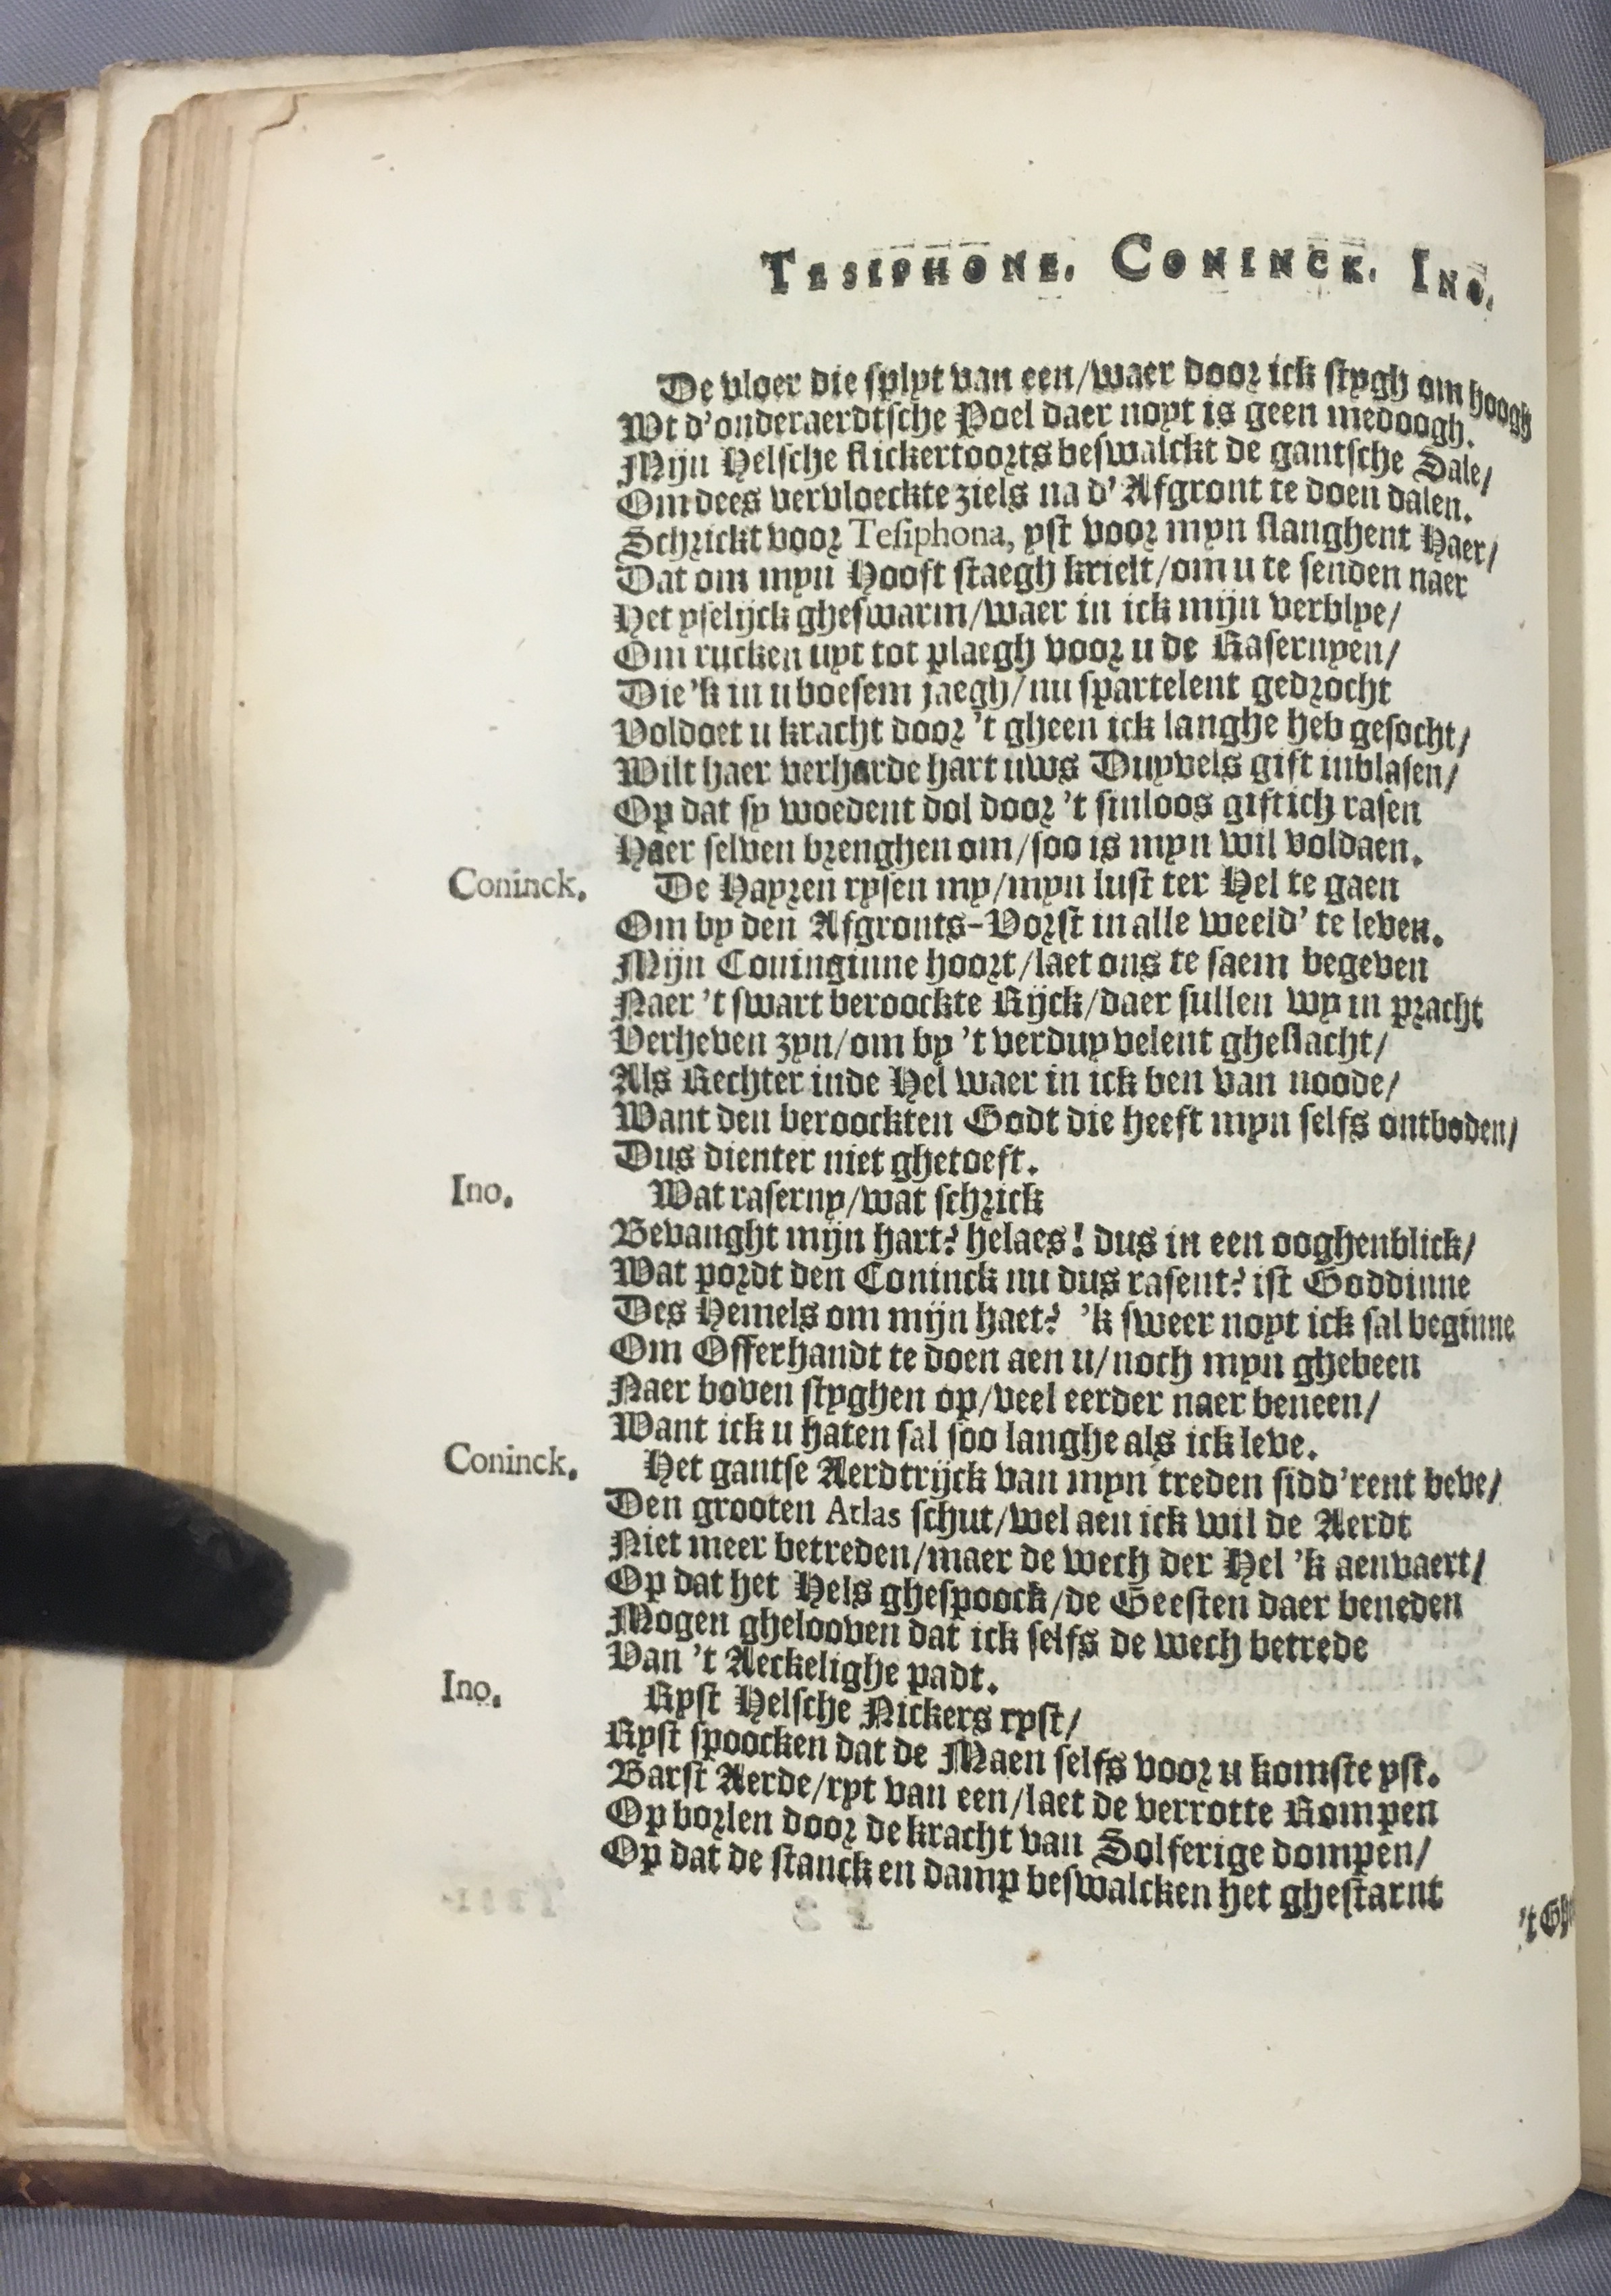 TESIPHONE. CONINCK. INO.
De vloer die splyt van een/waer door ick stygh om hoogh
Wt d'onderaerdtsche Poel daer noyt is geen medoogh.
Mijn Helsche flickertoorts beswalckt de gantsche Sale/
Om dees vervloeckte ziels na d'Afgront te doen dalen.
Schrickt voor Tesiphona, yst voor myn slanghent Haer/
Dat om myn Hooft staegh krielt/om u te senden naer
Het yselijck gheswarm/waer in ick mijn verblye/
Om rucken uyt tot plaegh voor u de Rasernyen/
Die 'k in u boesem jaegh/nu spartelent gedrocht
Voldoet u kracht door 't gheen ick langhe heb gesocht/
Wilt haer verharde hart uws Duyvels gift inblasen/
Op dat sy woedent dol door 't sinloos giftich rasen
Haer selven brenghen om/soo is myn wil voldaen.
Coninck. De Hayren rysen my/myn lust ter Hel te gaen
Om by den Afgronts-Vorst in alle weeld' te leven.
Mijn Couinginne hoort/laet ons te saem begeven
Naer 't swart beroockte Rijck/daer sullen wy in pracht
Verheven zyn/om by 't verduyvelent gheslacht/
Als Rechter inde Hel waer in ick ben van noode/
Want den beroockten Godt die heeft myn selfs ontboden/
Dus dienter niet ghetoeft.
Ino. Wat raserny/wat schrick
Bevanght mijn hart? helaes! dus in een ooghenblick/
Wat pordt den Coninck nu dus rasent? ist Goddinne
Des Hemels om mijn haet? 'k sweer noyt ick sal beginne
Om Offerhandt te doen aen u/noch myn ghebeen
Naer boven styghen op/veel eerder naer beneen/
Want ick u haten sal soo langhe als ick leve.
Coninck. Het gantse Aerdtrijck van myn treden sidd'rent beve/
Den grooten Atlas schut/wel aen ick wil de Aerdt
Niet meer betreden/maer de wech der Hel 'k aenvaert/
Op dat het Hels ghespoock/de Geesten daer beneden
Mogen ghelooven dat ick selfs de wech betrede
Van 't Aeckelighe padt.
Ino. Ryst Helsche Nickers ryst/
Ryst spoocken dat de Maen selfs voor u komste yst.
Barst Aerde/ryt van een/laet de verrotte Rompen
Op borlen door de kracht van Solferige dompen/
Op dat de stanck en damp beswalcken het ghestarnt